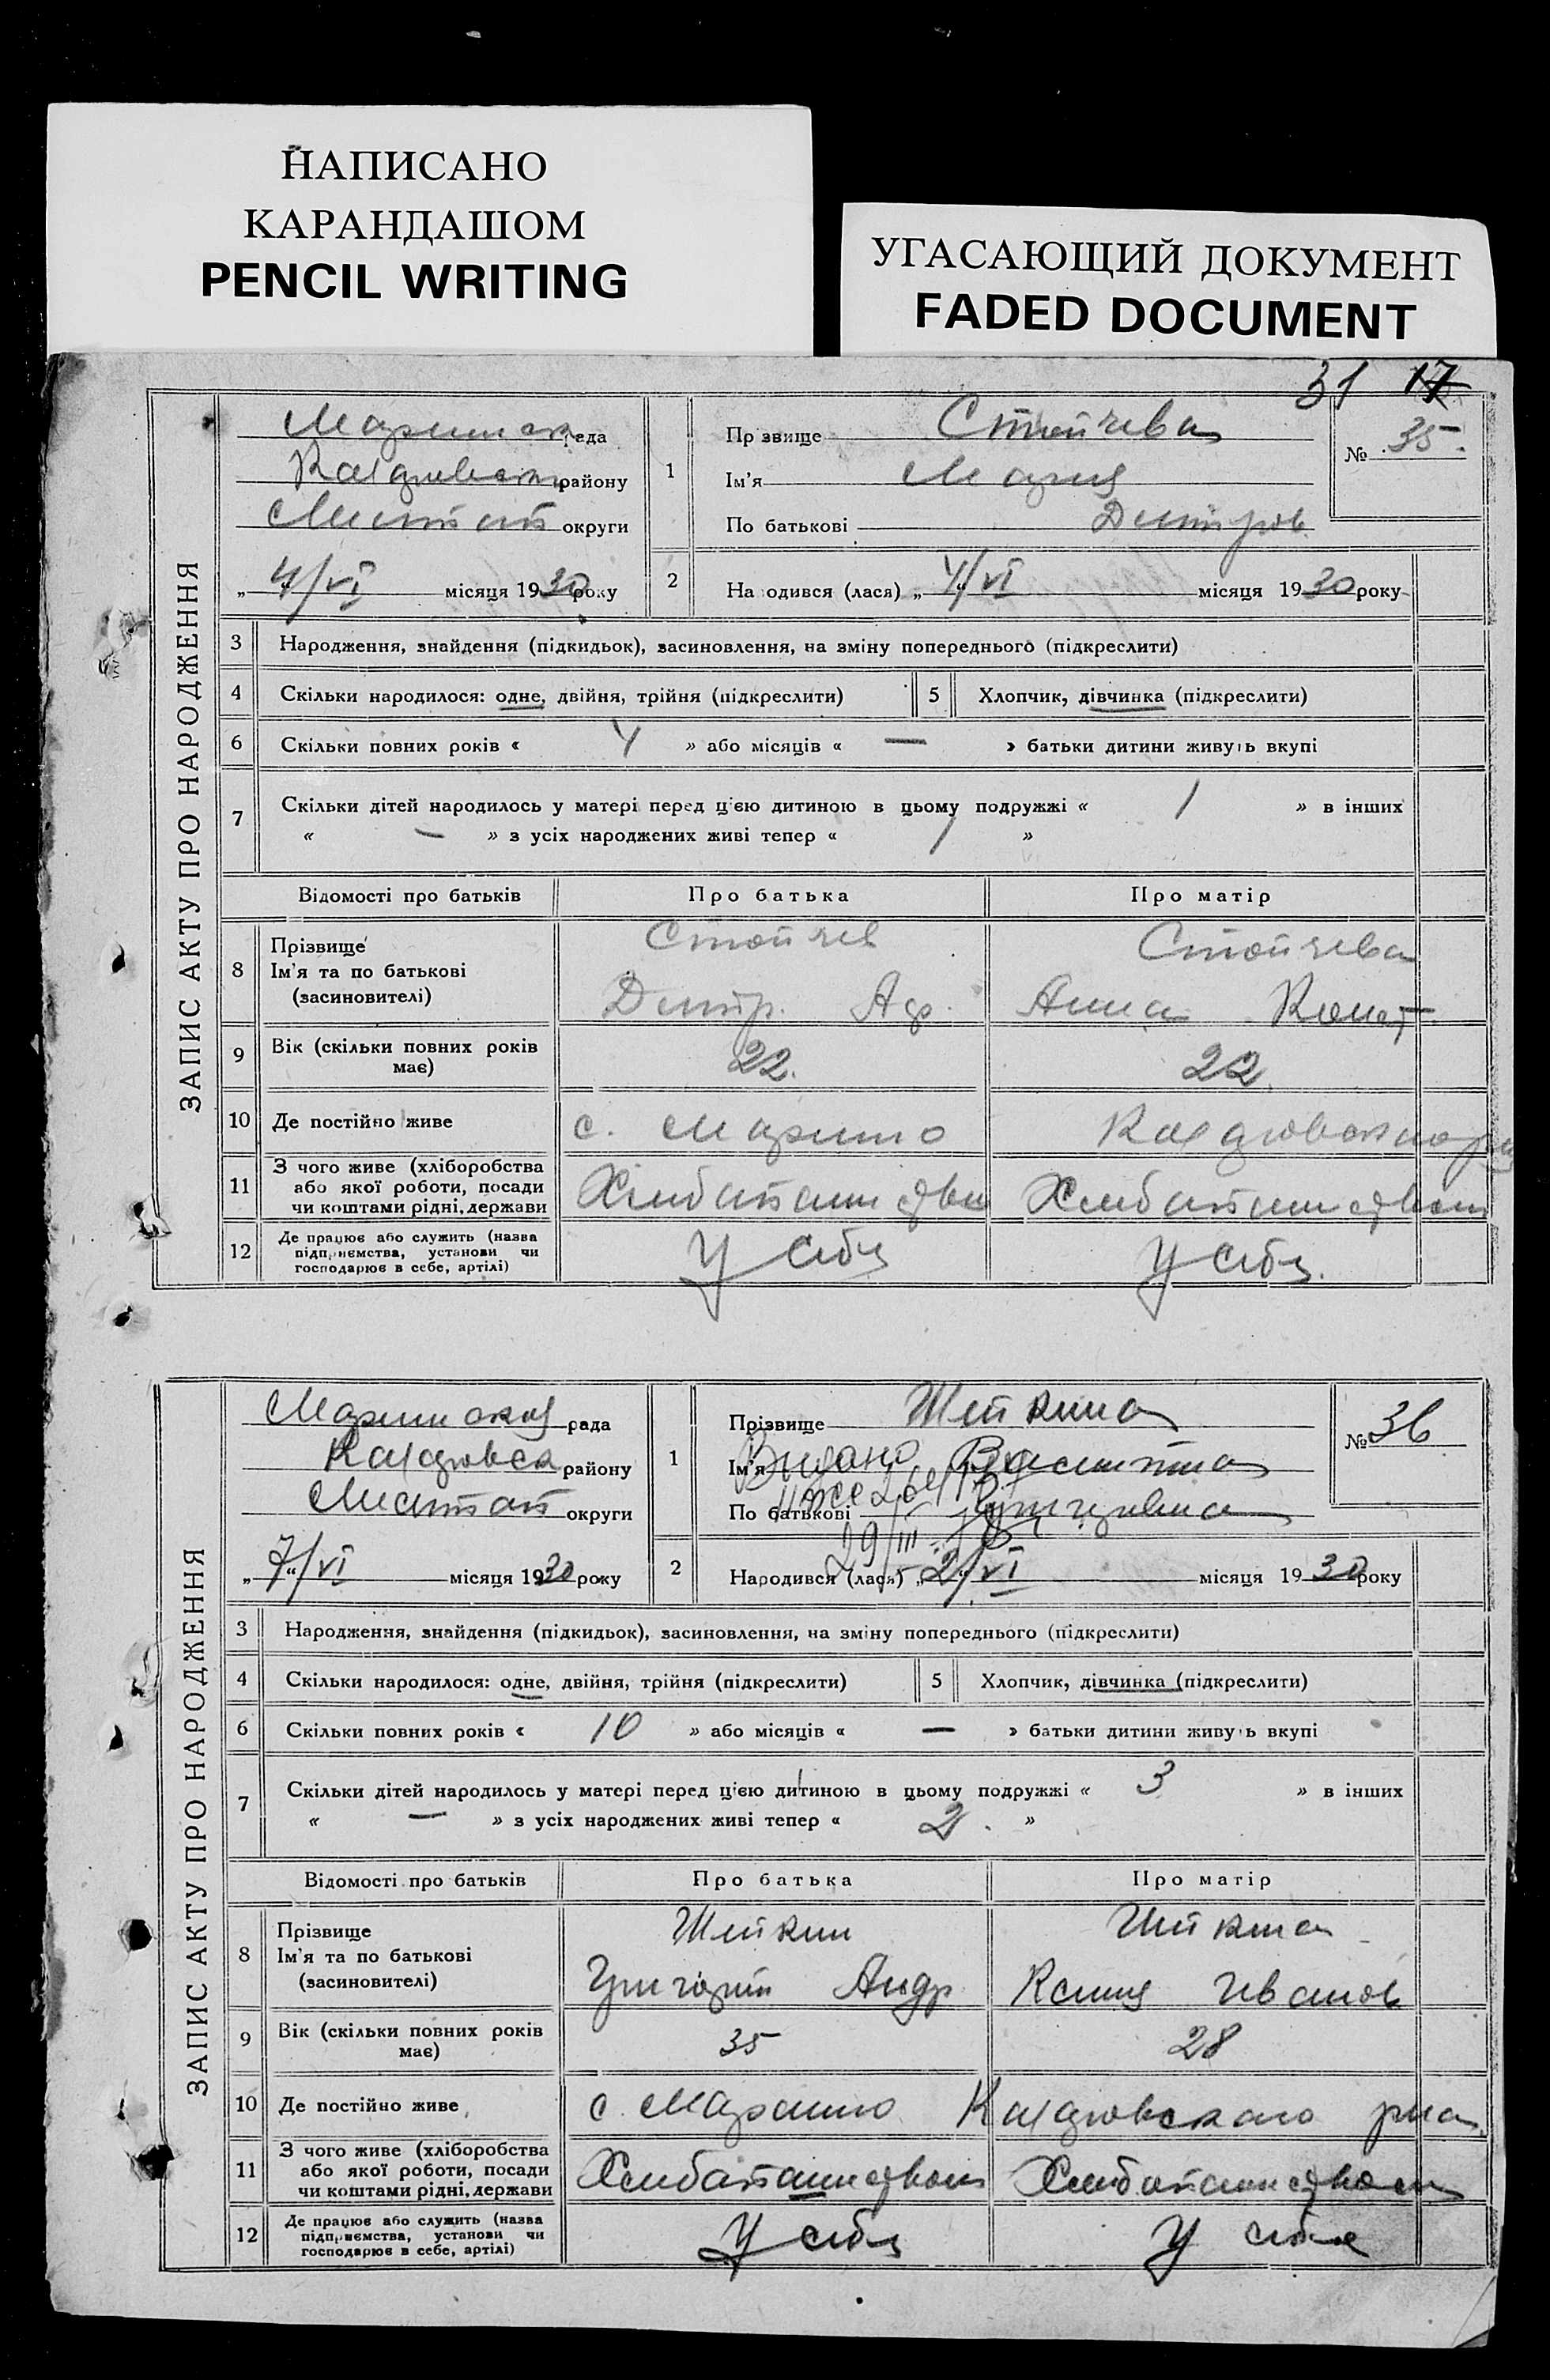 НАПИСАНО
КАРАНДАШОМ
PENCIL WRITING
УГАСАЮЩИЙ ДОКУМЕНТ
FADED DOCUMENT
31 17
ЗАПИС АКТУ ПРО НАРОДЖЕННЯ
рада
району
округи
„4/VI місяця 1930 року
1 Прізвище Стойчева
Ім'я Мария
По батькові Дмитров.
№ 35.
2 Народився (лася) „4/VI місяця 1930 року
3 Народження, знайдення (підкидьок), засиновлення, на зміну попереднього (підкреслити)
4 Скільки народилося: одне, двійня, трійня (підкреслити) 5 Хлопчик, дівчинка (підкреслити)
6 Скільки повних років « 4 » або місяців « — » батьки дитини живуть вкупі
7 Скільки дітей народилось у матері перед цією дитиною в цьому подружжі « 1 » в інших
« — » з усіх народжених живі тепер « 1 »
Відомості про батьків Про батька Про матір
8 Прізвище Стойчев Стойчева
Ім'я та по батькові Дмитр. Анна
(засиновителі)
9 Вік (скільки повних років має) 22. 22.
10 Де постійно живе с. Марино
11 З чого живе (хліборобства
або якої роботи, посади
чи коштами рідні, держави
12 Де працює або служить (назва
підприємства, установи чи
господарює в себе, артілі) У себя У себя.
ЗАПИС АКТУ ПРО НАРОДЖЕННЯ
рада
району
округи
„7/VI місяця 1930 року
1 Прізвище Шейкина
Ім'я Видано
По батькові Григоривна
29/III
№ 36
2 Народився (лася) „2/VI місяця 1930 року
3 Народження, знайдення (підкидьок), засиновлення, на зміну попереднього (підкреслити)
4 Скільки народилося: одне, двійня, трійня (підкреслити) 5 Хлопчик, дівчинка (підкреслити)
6 Скільки повних років « 10 » або місяців « — » батьки дитини живуть вкупі
7 Скільки дітей народилось у матері перед цією дитиною в цьому подружжі « 3 » в інших
« — » з усіх народжених живі тепер « 2. »
Відомості про батьків Про батька Про матір
8 Прізвище Шейкин Шейкина
Ім'я та по батькові Григорий Андр Ксения Иванов
(засиновителі)
9 Вік (скільки повних років має) 35 28
10 Де постійно живе с. Марино
11 З чого живе (хліборобства
або якої роботи, посади
чи коштами рідні, держави
12 Де працює або служить (назва
підприємства, установи чи
господарює в себе, артілі) У себя У себя